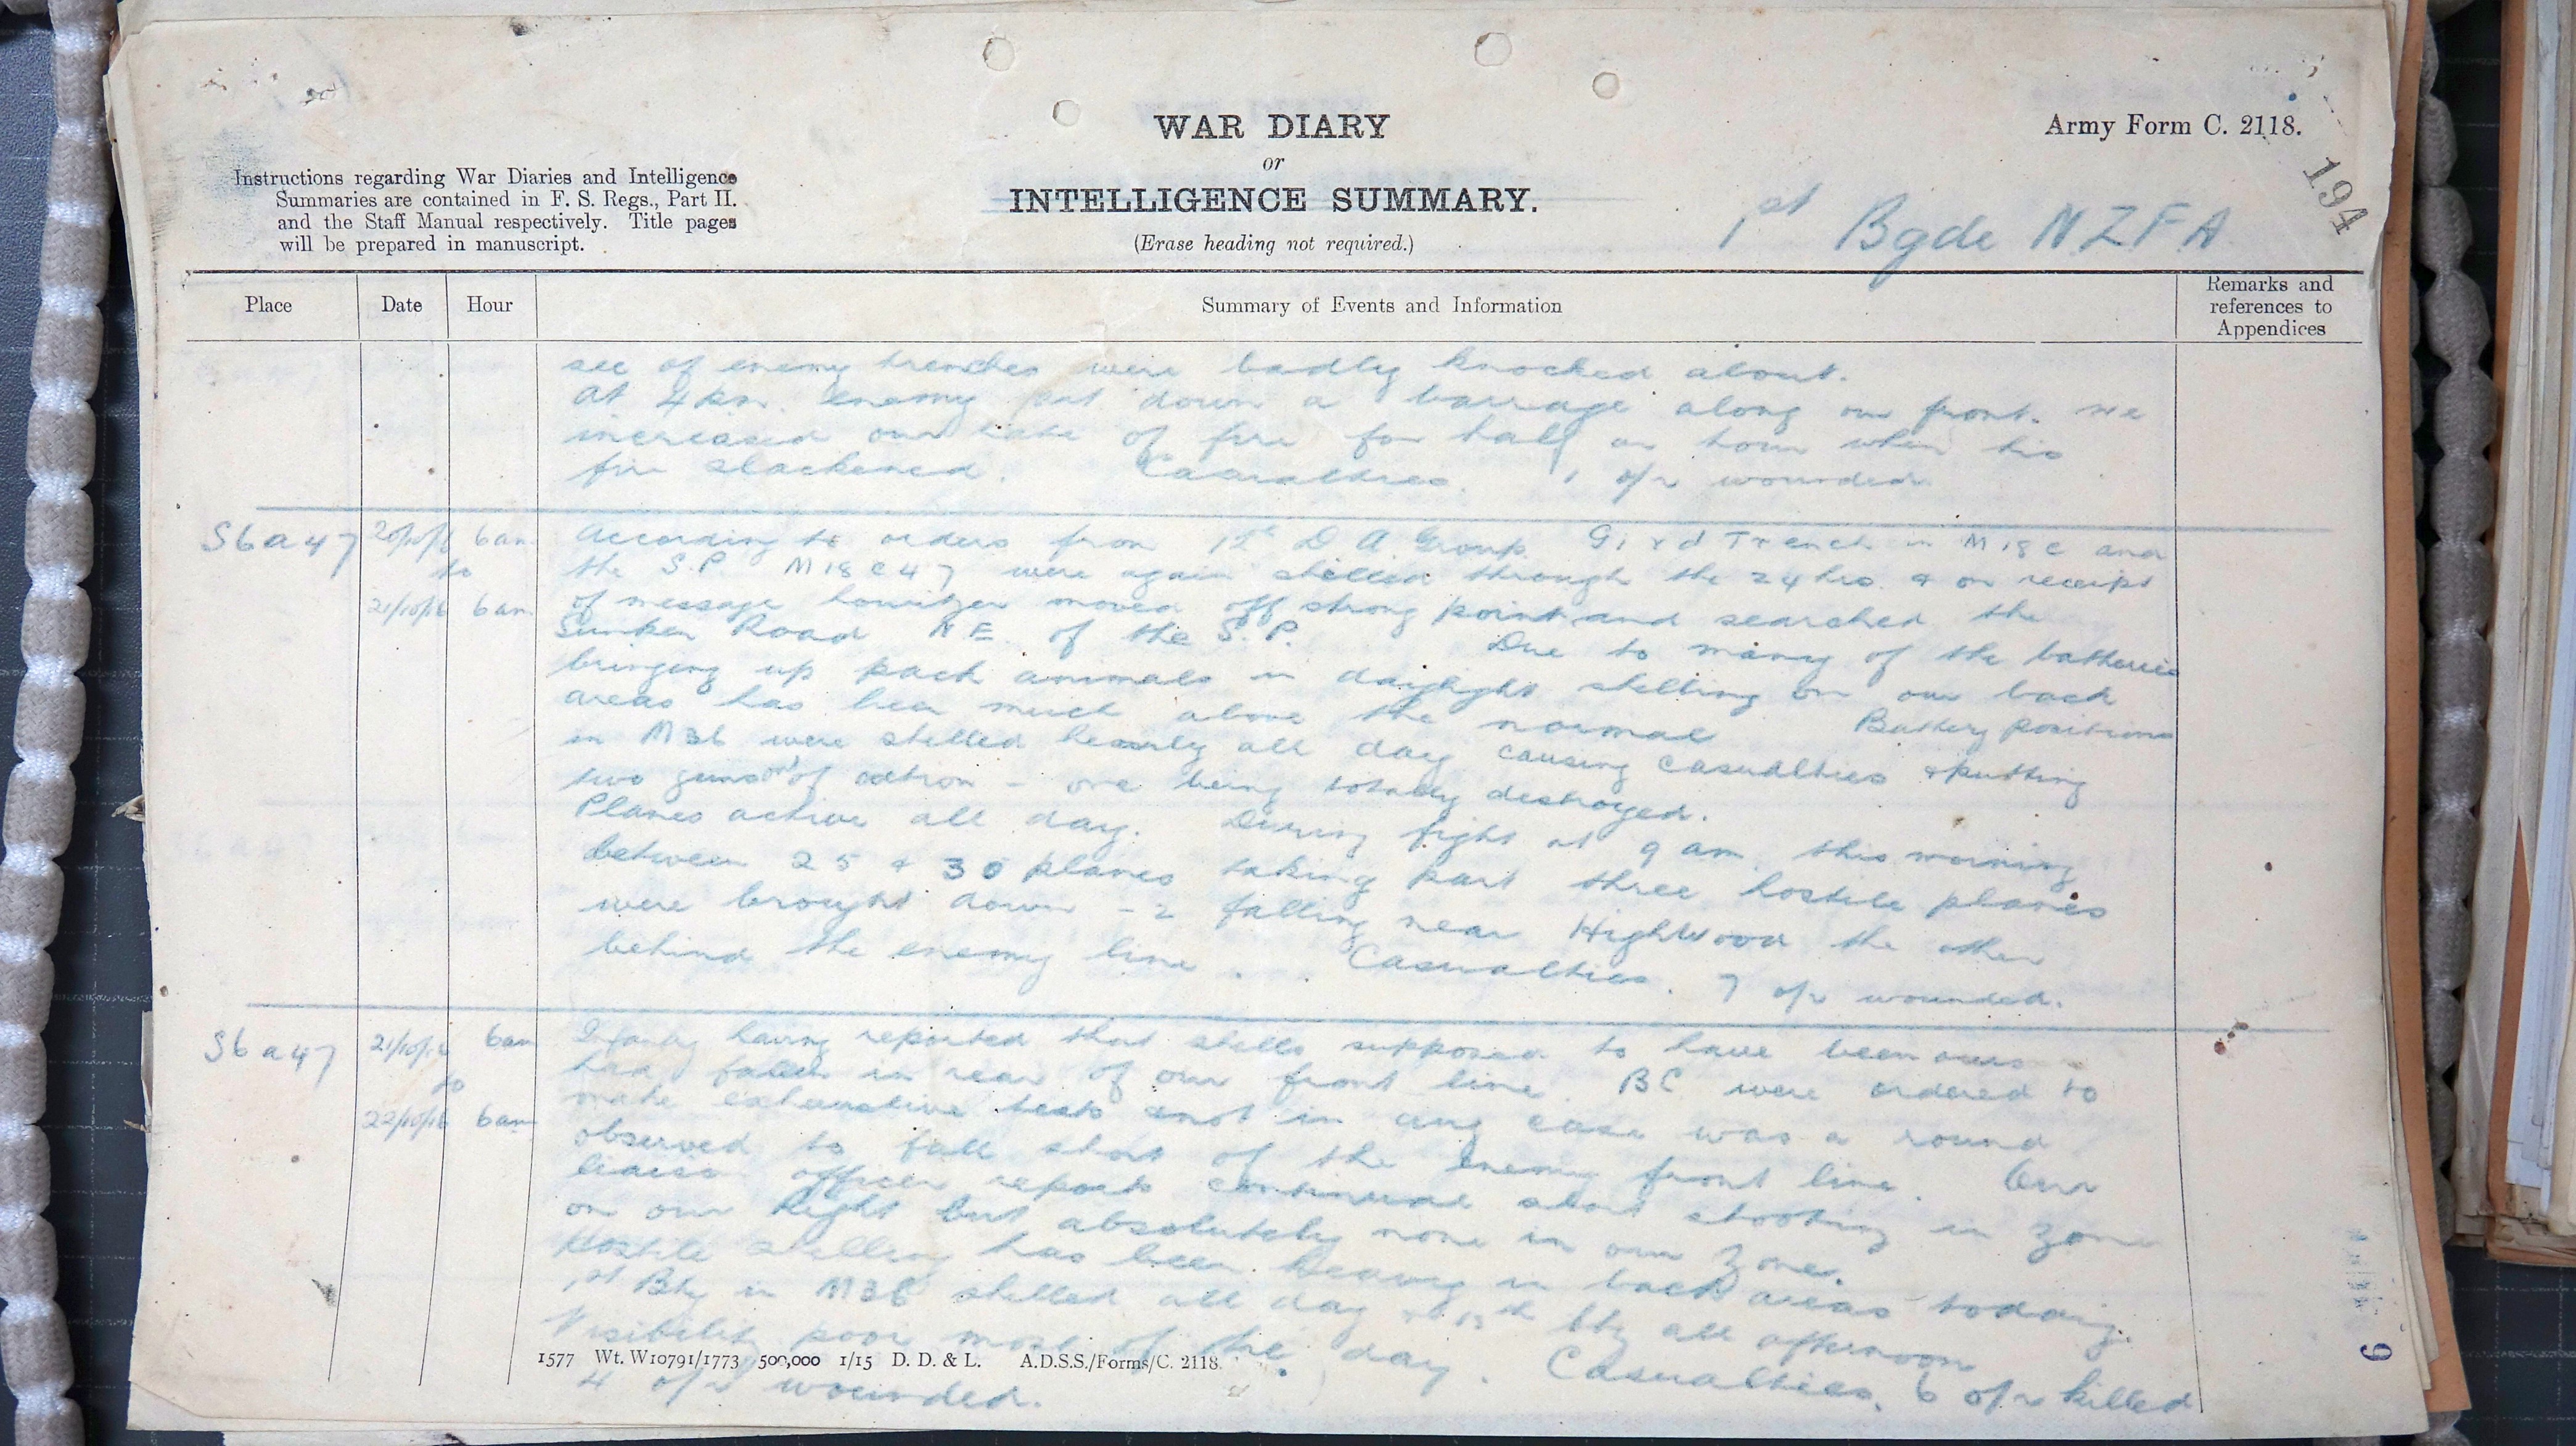 WAR DIARY
or
INTELLIGENCE SUMMARY.
(Erase heading not required.)
Army Form C. 2118.
194
Instructions regarding War Diaries and Intelligence
Summaries are contained in F. S. Regs., Part II.
and the Staff Manual respectively. Title pages
will be prepared in manuscript.
1st Bgde NZFA
Place Date Hour Summary of Events and Information Remarks and
references to
Appendices
see of enemy trenches were badly knocked about.
At 4 pm. enemy put down a barrage along our front. We
increased our rate of fire for half an hour when his
fire slackened. Casualties. 1 o/r wounded
S6a47 20/10/16 6am According to orders from D.A. Group. Gird Trench in M18c and
to the S.P. M18c47 were again shelled through the 24 hrs. & on receipt
21/10/16 6am of message howitzer moved off strong point and searched the
Sunken Road N.E. of the S.P. Due to many of the batteries
bringing up pack animals in daylight shelling on our back
areas has been much above the normal Battery positions
in M36 were shelled heavily all day causing casualties & putting
two guns out of action - one being totally destroyed.
Planes active all day. During fight at 9 am. this morning
between 25 & 30 planes taking part three hostile planes
were brought down - 2 falling near High Wood the other
behind the enemy line. Casualties. 7 o/r wounded.
S6a47 21/10/16 6am having reported that shells supposed to have been ours
to had fallen in rear of our front line. BC were ordered to
22/10/16 6am make exhaustive tests & not in any case was a round
observed to fall short of the enemy front line. Our
liaison officer reports continual short shooting in zone
on our Right but absolutely none in our Zone.
Hostile shelling has been heavy in back areas today.
1st Bty in M36 shelled all day & bty all afternoon
Visibility poor most of the day. Casualties. 6 o/r killed
4 o/r wounded.
1577 Wt. W10791/1773 500,000 1/15 D. D. & L. A.D.S.S./Forms/C. 2118.
6